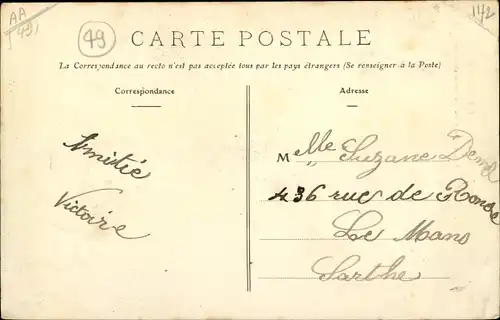 AA
491
49
1172
CARTE POSTALE
La Correspondance au recto n'est pas acceptée tous par les pays étrangers (Se renseigner à la Poste)
Correspondance
Adresse
Amitié
Victoire
Mlle Suzane
436 rue de
Le Mans
Sarthe